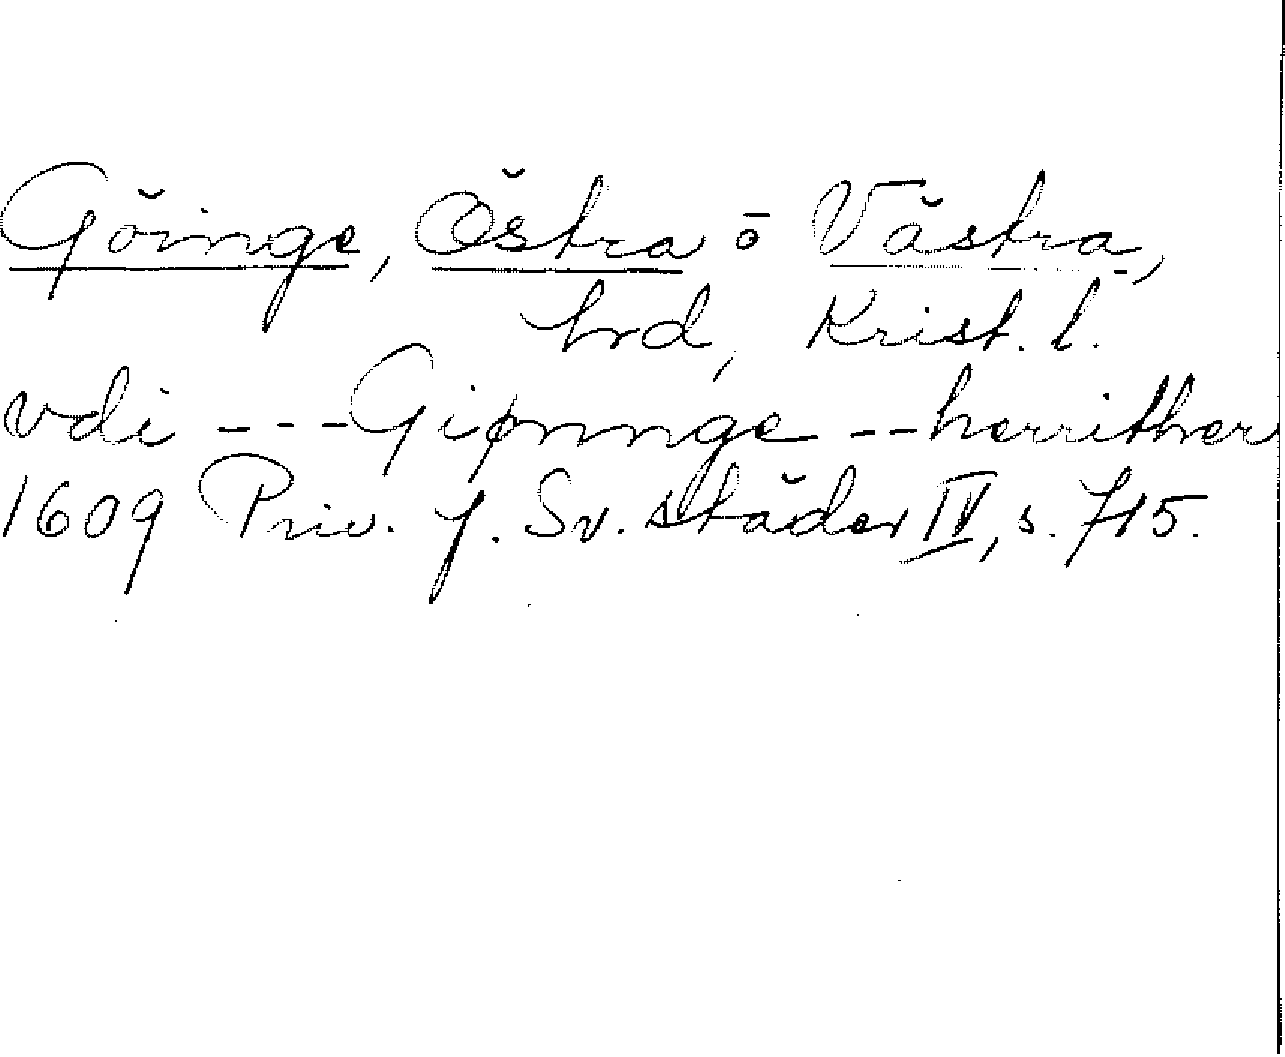 Göinge, Östra o Västra,
hrd, Krist. l.
vdi --- Giønnge -- herrither
1609 Priv. f. Sv. städer IV, s. 715.